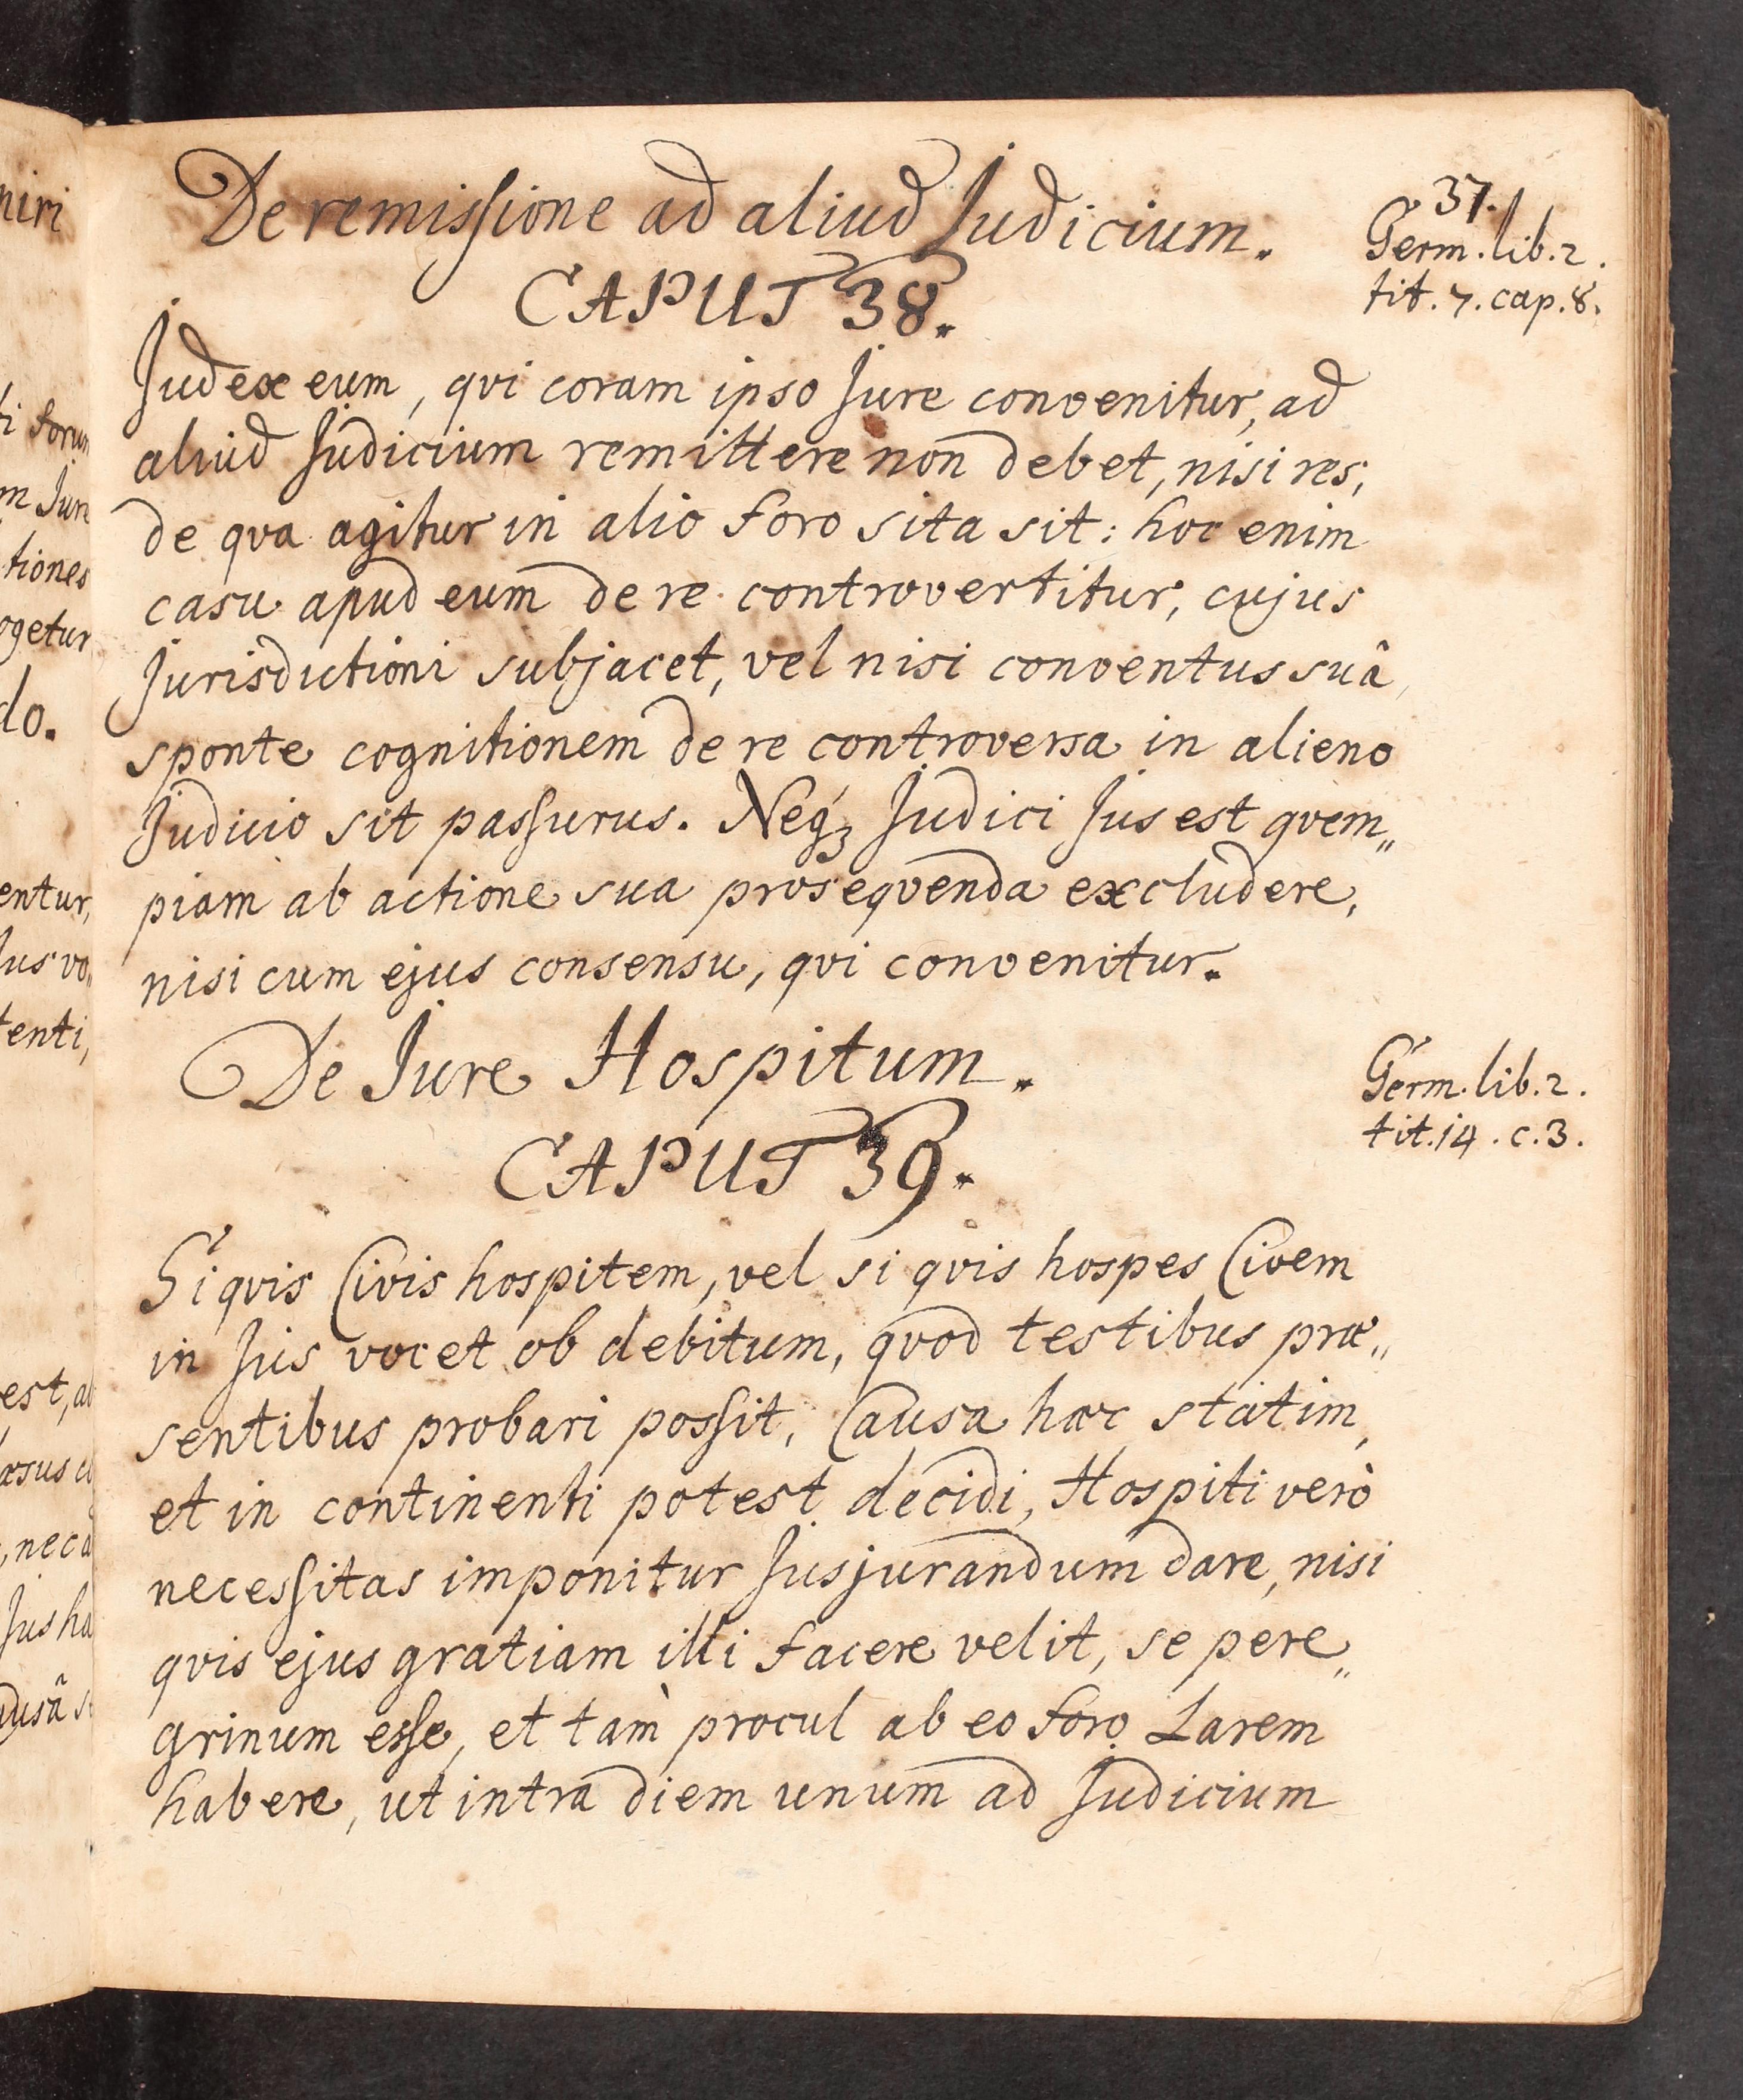 37.
De remissione ad aliud Judicium.
Germ. lib. 2.
tit. 7. cap. 8.
CAPUT 38.
Judex eum, qvi coram ipso Jure convenitur, ad
aliud Judicium remittere non debet, nisi res,
de qva agitur in alio foro sita sit: hoc enim
casu apud eum de re controvertitur, cujus
Jurisdictioni subjacet, vel nisi conventus suâ
sponte cognitionem de re controversa in alieno
Judicio sit passurus. Neqꝫ Judici Jus est qvem„
piam ab actione sua proseqvenda excludere,
nisi cum ejus consensu, qvi convenitur.
De Jure Hospitum.
Germ. lib. 2.
tit. 14. c. 3.
CAPUT 39.
Si qvis Civis hospitem, vel si qvis hospes Civem
in Jus vocet ob debitum, qvod testibus præ„
sentibus probari possit, Causa hæc statim,
et in continenti potest decidi, Hospiti verò
necessitas imponitur Jusjurandum dare, nisi
qvis ejus gratiam illi facere velit, se pere„
grinum esse, et tam procul ab eo foro Larem
habere, ut intra diem unum ad Judicium